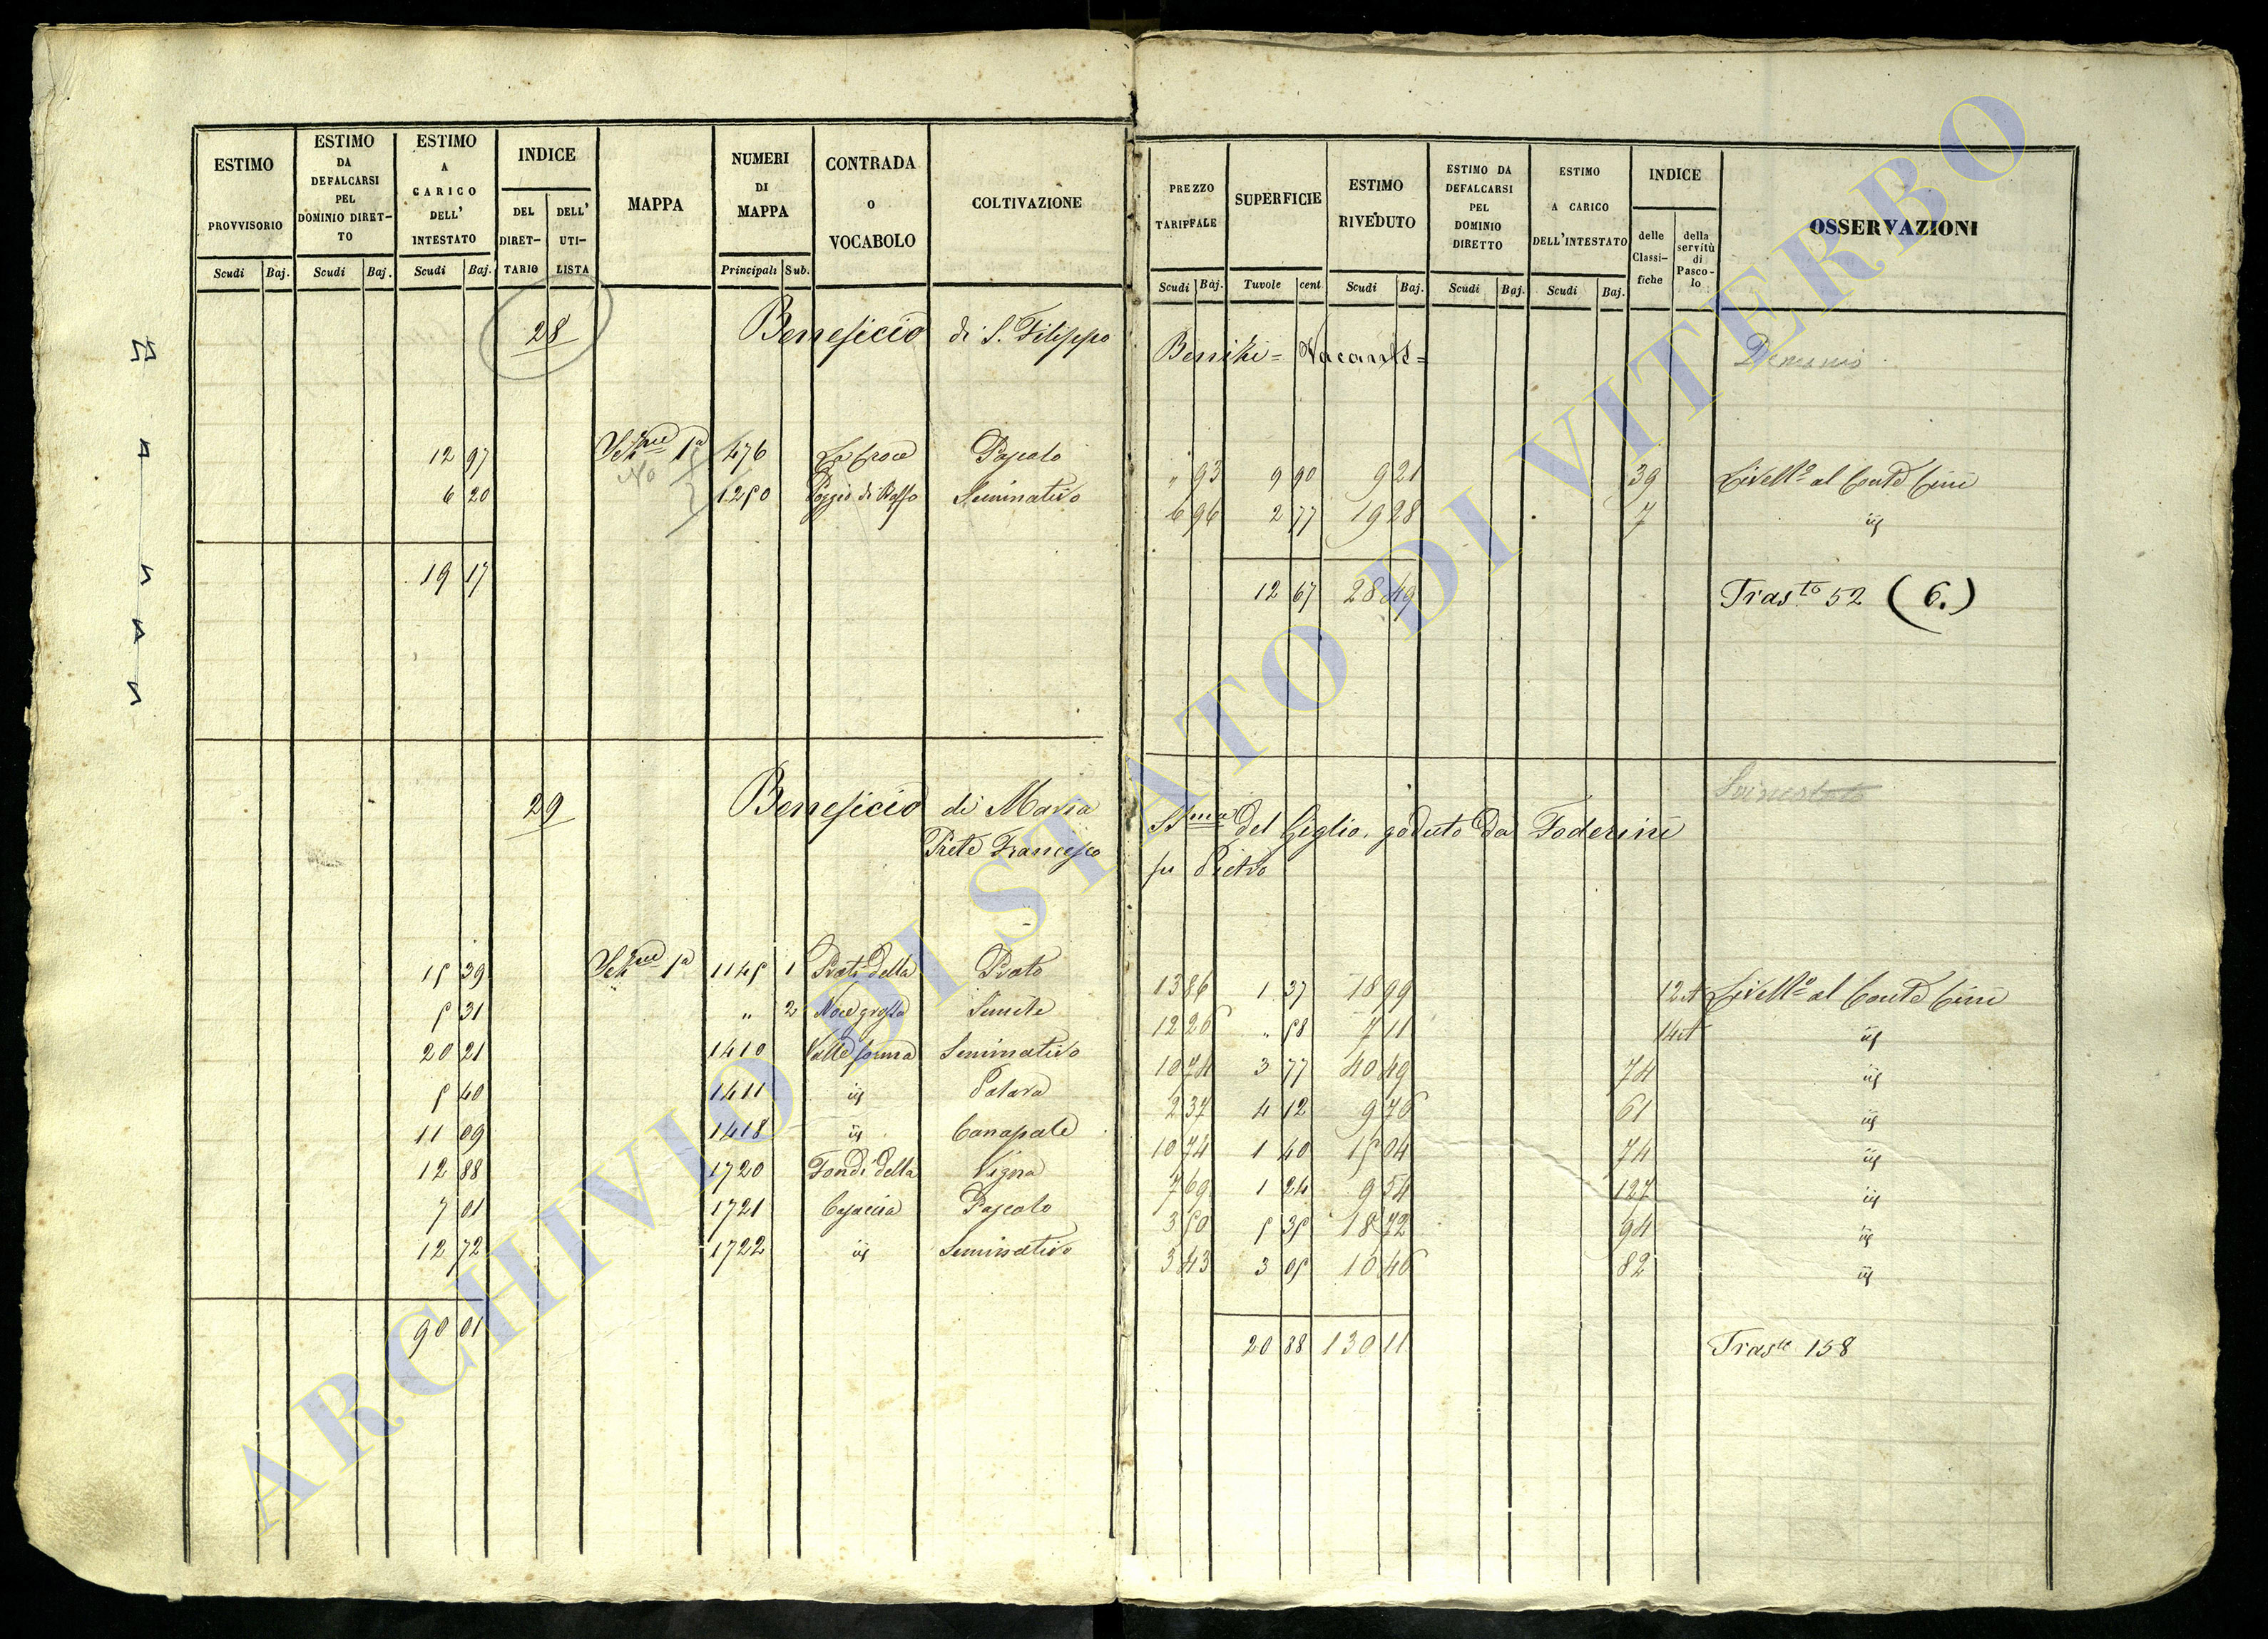 ESTIMO PROVVISORIO Scudi Baj.
ESTIMO DA DEFALCARSI PEL DOMINIO DIRET-TO Scudi Baj.
ESTIMO A CARICO DELL' INTESTATO Scudi Baj.
INDICE DEL DIRET-TARIO DELL' UTI-LISTA
MAPPA
NUMERI DI MAPPA Principali Sub.
CONTRADA O VOCABOLO
COLTIVAZIONE
PREZZO TARIFFALE Scudi Baj.
SUPERFICIE Tavole cent
ESTIMO RIVEDUTO Scudi Baj.
ESTIMO DA DEFALCARSI PEL DOMINIO DIRETTO Scudi Baj.
ESTIMO A CARICO DELL'INTESTATO Scudi Baj.
INDICE delle Classi-fiche della servitù di Pasco-lo
OSSERVAZIONI
28 Beneficio di S. Filippo Benizi = Vacante = Demanio
12 97 Sez.ne 1a 476 La Croce Pascolo " 93 9 90 9 21 39 Livell.o al Conte Cini
No
6 20 1250 Poggio di Rosso Seminativo 6 96 2 77 19 28 7 iij
19 17 12 67 28 49 Tras.to 52 (6.)
29 Beneficio di Maria SSma del Giglio, goduto da Foderini
Prete Francesco fu Pietro
15 39 Sez.ne 1a 1145 1 Prati della Prato 13 86 1 37 18 99 12 A Livell.o al Conte Cini
5 31 " 2 Noce grossa Simile 12 26 " 58 7 11 14 A iij
20 21 1410 Valle forma Seminativo 10 74 3 77 40 49 74 iij
5 40 1411 iij 2 37 4 12 9 76 61 iij
11 09 1418 iij Canapale 10 74 1 40 15 04 74 iij
12 88 1720 Fondi della Vigna 7 69 1 24 9 54 127 iij
7 01 1721 Casaccia Pascolo 3 50 5 35 18 72 94 iij
12 72 1722 iij Seminativo 3 43 3 05 10 46 82 iij
90 01 20 88 130 11 Tras.to 158
ARCHIVIO DI STATO DI VITERBO